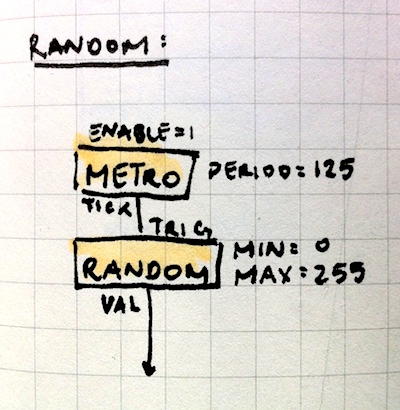 RANDOM:
ENABLE=1
METRO PERIOD=125
TICK
TRIG
RANDOM MIN=0
MAX=255
VAL